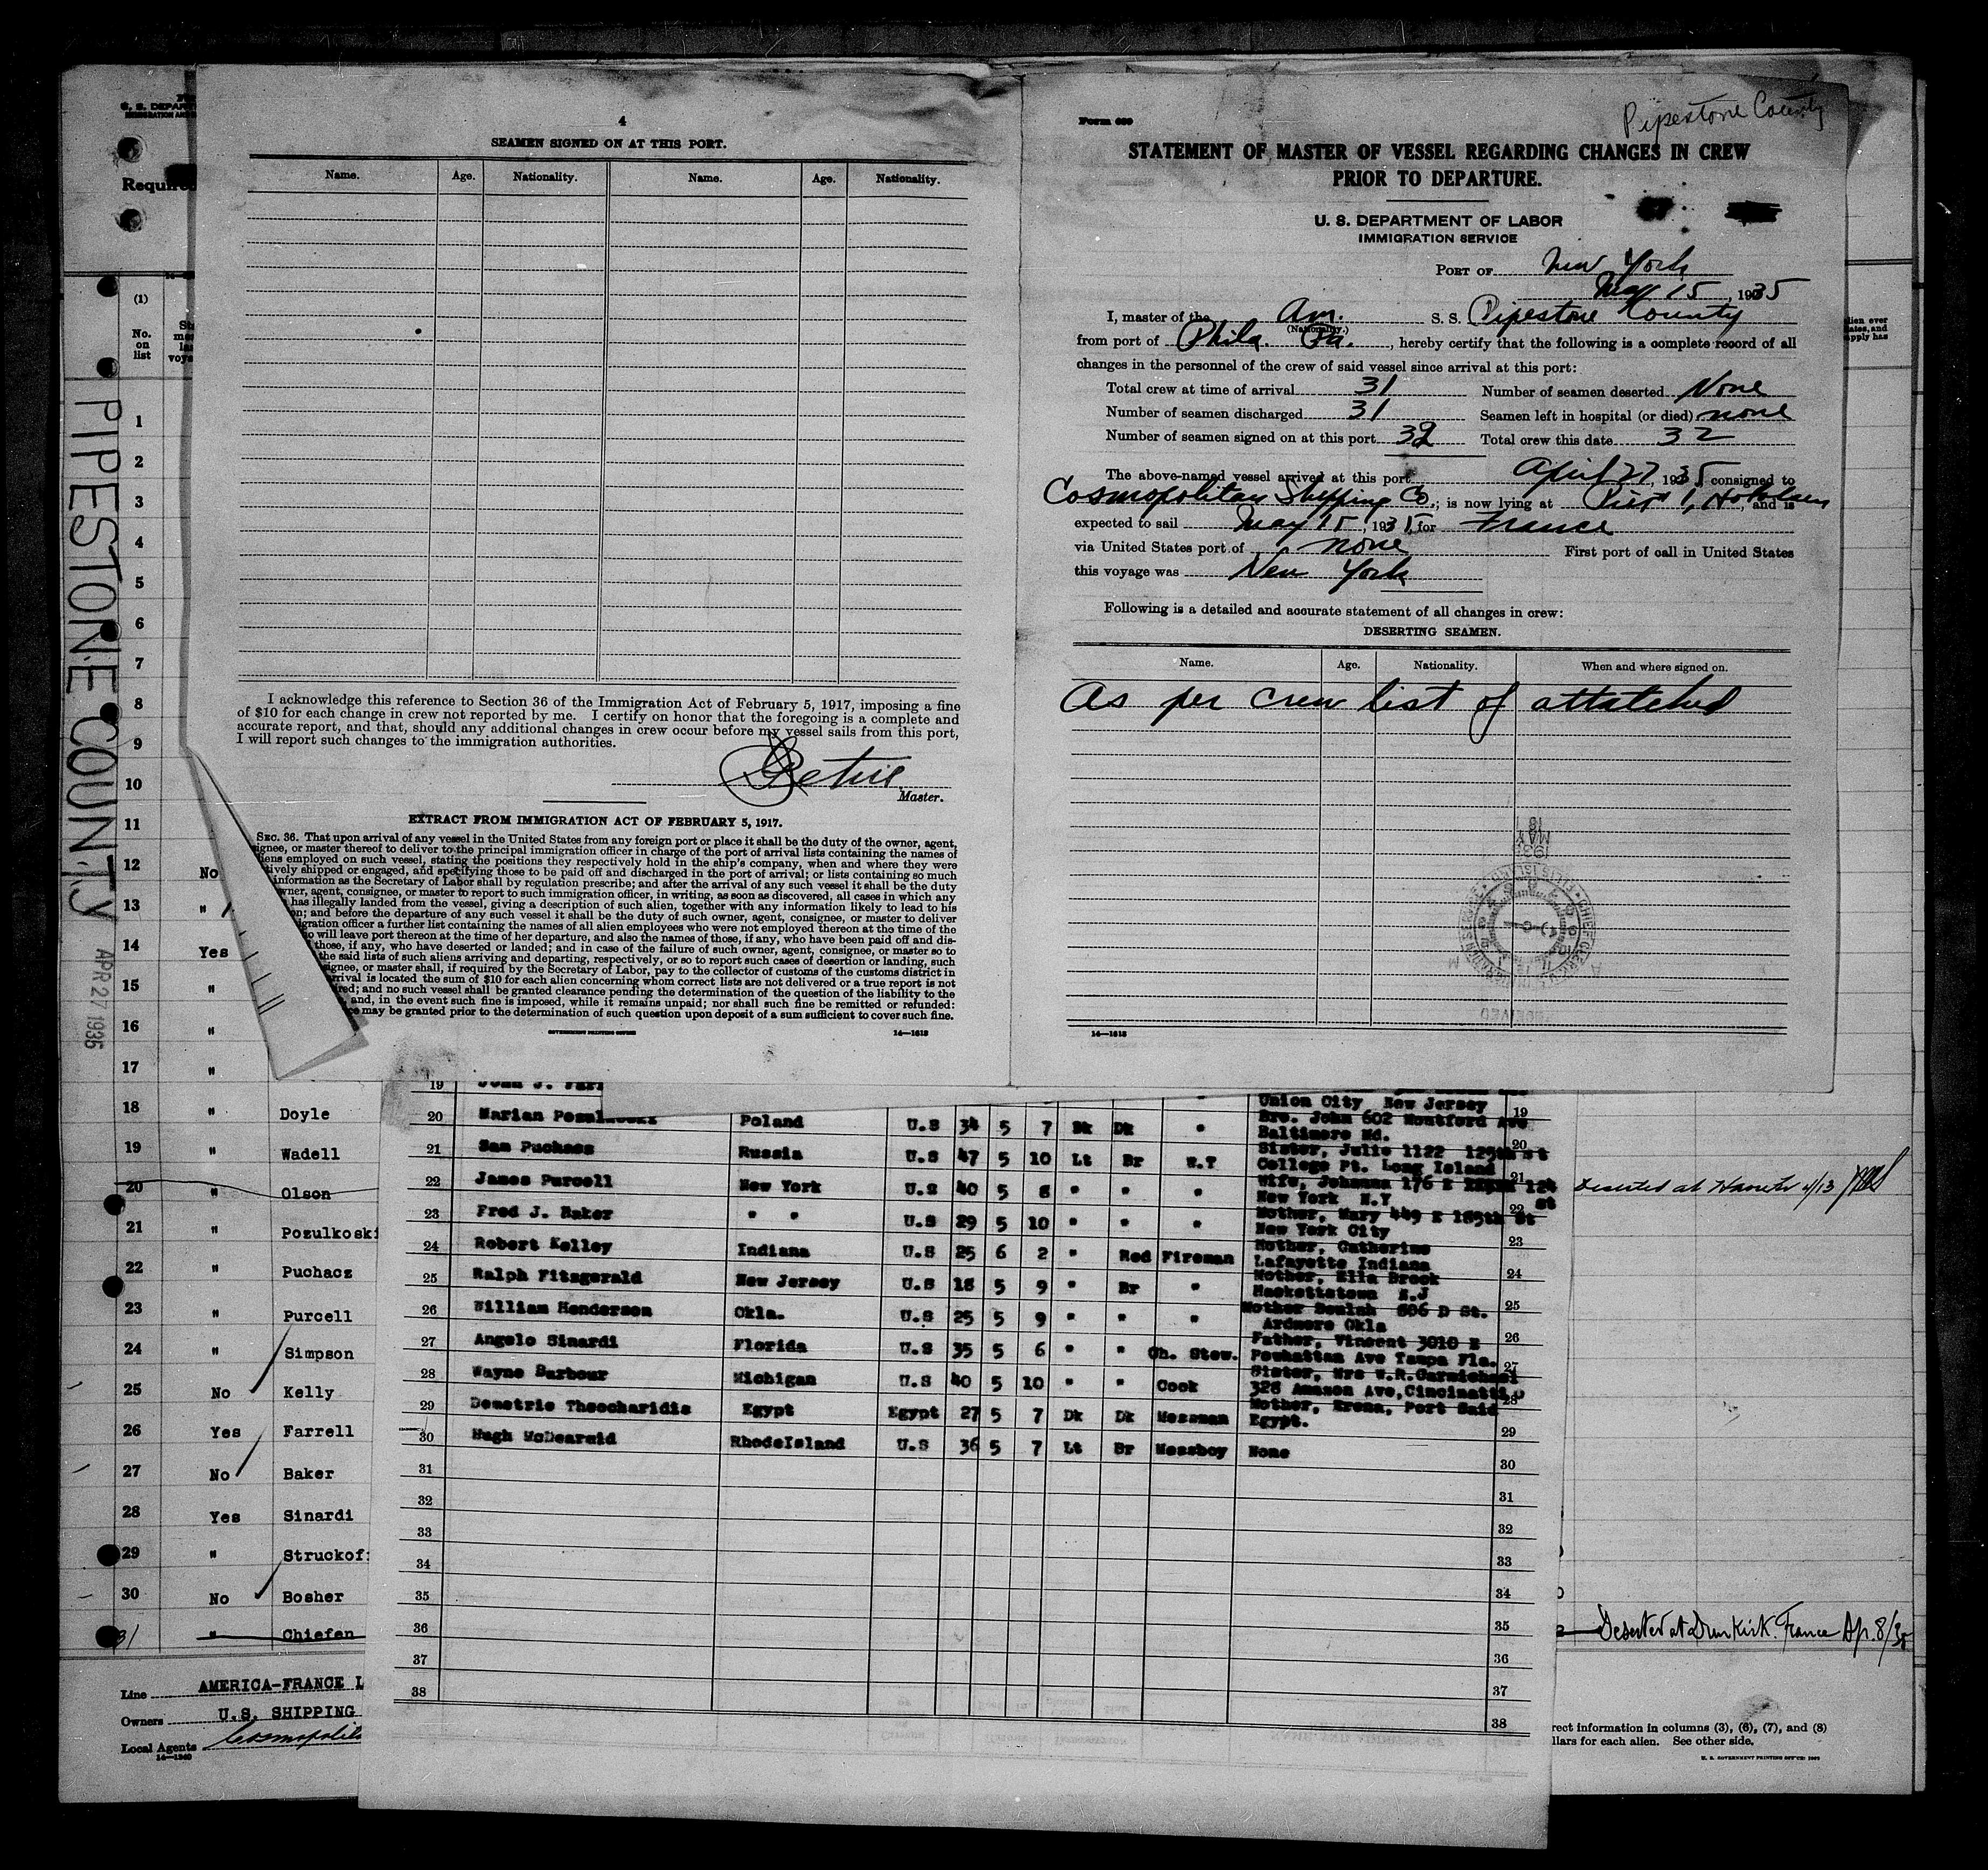 4
SEAMEN SIGNED ON AT THIS PORT.
Name. Age. Nationality. Name. Age. Nationality.
I acknowledge this reference to Section 36 of the Immigration Act of February 5, 1917, imposing a fine
of $10 for each change in crew not reported by me. I certify on honor that the foregoing is a complete and
accurate report, and that, should any additional changes in crew occur before my vessel sails from this port,
I will report such changes to the immigration authorities.
Master.
EXTRACT FROM IMMIGRATION ACT OF FEBRUARY 5, 1917.
SEC. 36. That upon arrival of any vessel in the United States from any foreign port or place it shall be the duty of the owner, agent,
ignee, or master thereof to deliver to the principal immigration officer in charge of the port of arrival lists containing the names of
liens employed on such vessel, stating the positions they respectively hold in the ship's company, when and where they were
tively shipped or engaged, and specifying those to be paid off and discharged in the port of arrival; or lists containing so much
information as the Secretary of Labor shall by regulation prescribe; and after the arrival of any such vessel it shall be the duty
wner, agent, consignee, or master to report to such immigration officer, in writing, as soon as discovered, all cases in which any
has illegally landed from the vessel, giving a description of such alien, together with any information likely to lead to his
on; and before the departure of any such vessel it shall be the duty of such owner, agent, consignee, or master to deliver
igration officer a further list containing the names of all alien employees who were not employed thereon at the time of the
o will leave port thereon at the time of her departure, and also the names of those, if any, who have been paid off and dis-
those, if any, who have deserted or landed; and in case of the failure of such owner, agent, consignee, or master so to
the said lists of such aliens arriving and departing, respectively, or so to report such cases of desertion or landing, such
ignee, or master shall, if required by the Secretary of Labor, pay to the collector of customs of the customs district in
arrival is located the sum of $10 for each alien concerning whom correct lists are not delivered or a true report is not
red; and no such vessel shall be granted clearance pending the determination of the question of the liability to the
and, in the event such fine is imposed, while it remains unpaid; nor shall such fine be remitted or refunded:
ce may be granted prior to the determination of such question upon deposit of a sum sufficient to cover such fine.
GOVERNMENT PRINTING OFFICE 14—1618
Pipestone County
Form 689
STATEMENT OF MASTER OF VESSEL REGARDING CHANGES IN CREW
PRIOR TO DEPARTURE.
U. S. DEPARTMENT OF LABOR
IMMIGRATION SERVICE
PORT OF New York
May 15, 1935
I, master of the Am. S. S. Pipestone County
(Nationality.)
from port of Phila. Pa., hereby certify that the following is a complete record of all
changes in the personnel of the crew of said vessel since arrival at this port:
Total crew at time of arrival 31 Number of seamen deserted None
Number of seamen discharged 31 Seamen left in hospital (or died) none
Number of seamen signed on at this port 32 Total crew this date 32
The above-named vessel arrived at this port April 27, 1935, consigned to
Cosmopolitan Shipping Co.; is now lying at Pier 1, Hoboken, and is
expected to sail May 15, 1935, for France
via United States port of none First port of call in United States
this voyage was New York
Following is a detailed and accurate statement of all changes in crew:
DESERTING SEAMEN.
Name. Age. Nationality. When and where signed on.
As per crew list of attatched
14—1618
PIPESTONE COUNTY
APR 27 1935
(1)
No. on list
1
2
3
4
5
6
7
8
9
10
11
12 No
13 "
14 Yes
15 "
16 "
17 "
18 " Doyle
19 " Wadell
20 " Olson Deserted at
21 " Pozulkoski
22 " Puchacz
23 " Purcell
24 " Simpson
25 No Kelly
26 Yes Farrell
27 No Baker
28 Yes Sinardi
29 " Struckoff
30 No Bosher
31 " Chiefen Deserted at Dunkirk. France Ap. 8/35
Line AMERICA-FRANCE L
Owners U.S. SHIPPING
Local Agents Cosmopolit
14—1240
rect information in columns (3), (6), (7), and (8)
llars for each alien. See other side.
U. S. GOVERNMENT PRINTING OFFICE
19 John J. Farr Union City New Jersey 19
20 Marian Pozulkoski Poland U.S 34 5 7 Dk Dk " Bro. John 602 Montford Ave Baltimore Md. 20
21 Sam Puchacs Russia U.S 47 5 10 Lt Br W.T Sister, Julie 1122 125th St College Pt. Long Island 21
22 James Purcell New York U.S 40 5 8 " " " Wife, Johanna 176 E 124 St New York N.Y 22
23 Fred J. Baker " " U.S 29 5 10 " " " Mother, Mary 449 E 165th St New York City 23
24 Robert Kelley Indiana U.S 25 6 2 " Red Fireman Mother, Catherine Lafayette Indiana 24
25 Ralph Fitzgerald New Jersey U.S 18 5 9 " Br " Mother, Ella Brook Hackettstown N.J 25
26 William Henderson Okla. U.S 25 5 9 " " " Mother Beulah 606 D St. Ardmore Okla 26
27 Angelo Sinardi Florida U.S 35 5 6 " " Ch. Stew. Father, Vincent 3010 E Powhattan Ave Tampa Fla. 27
28 Wayne Barbour Michigan U.S 40 5 10 " " Cook Sister, Mrs W.R.Carmichael 328 Amazon Ave,Cincinatti,O 28
29 Demetrie Theocharidis Egypt Egypt 27 5 7 Dk Dk Messman Mother, Erena, Port Said Egypt. 29
30 Hugh McDearmid RhodeIsland U.S 36 5 7 Lt Br Messboy None 30
31 31
32 32
33 33
34 34
35 35
36 36
37 37
38 38